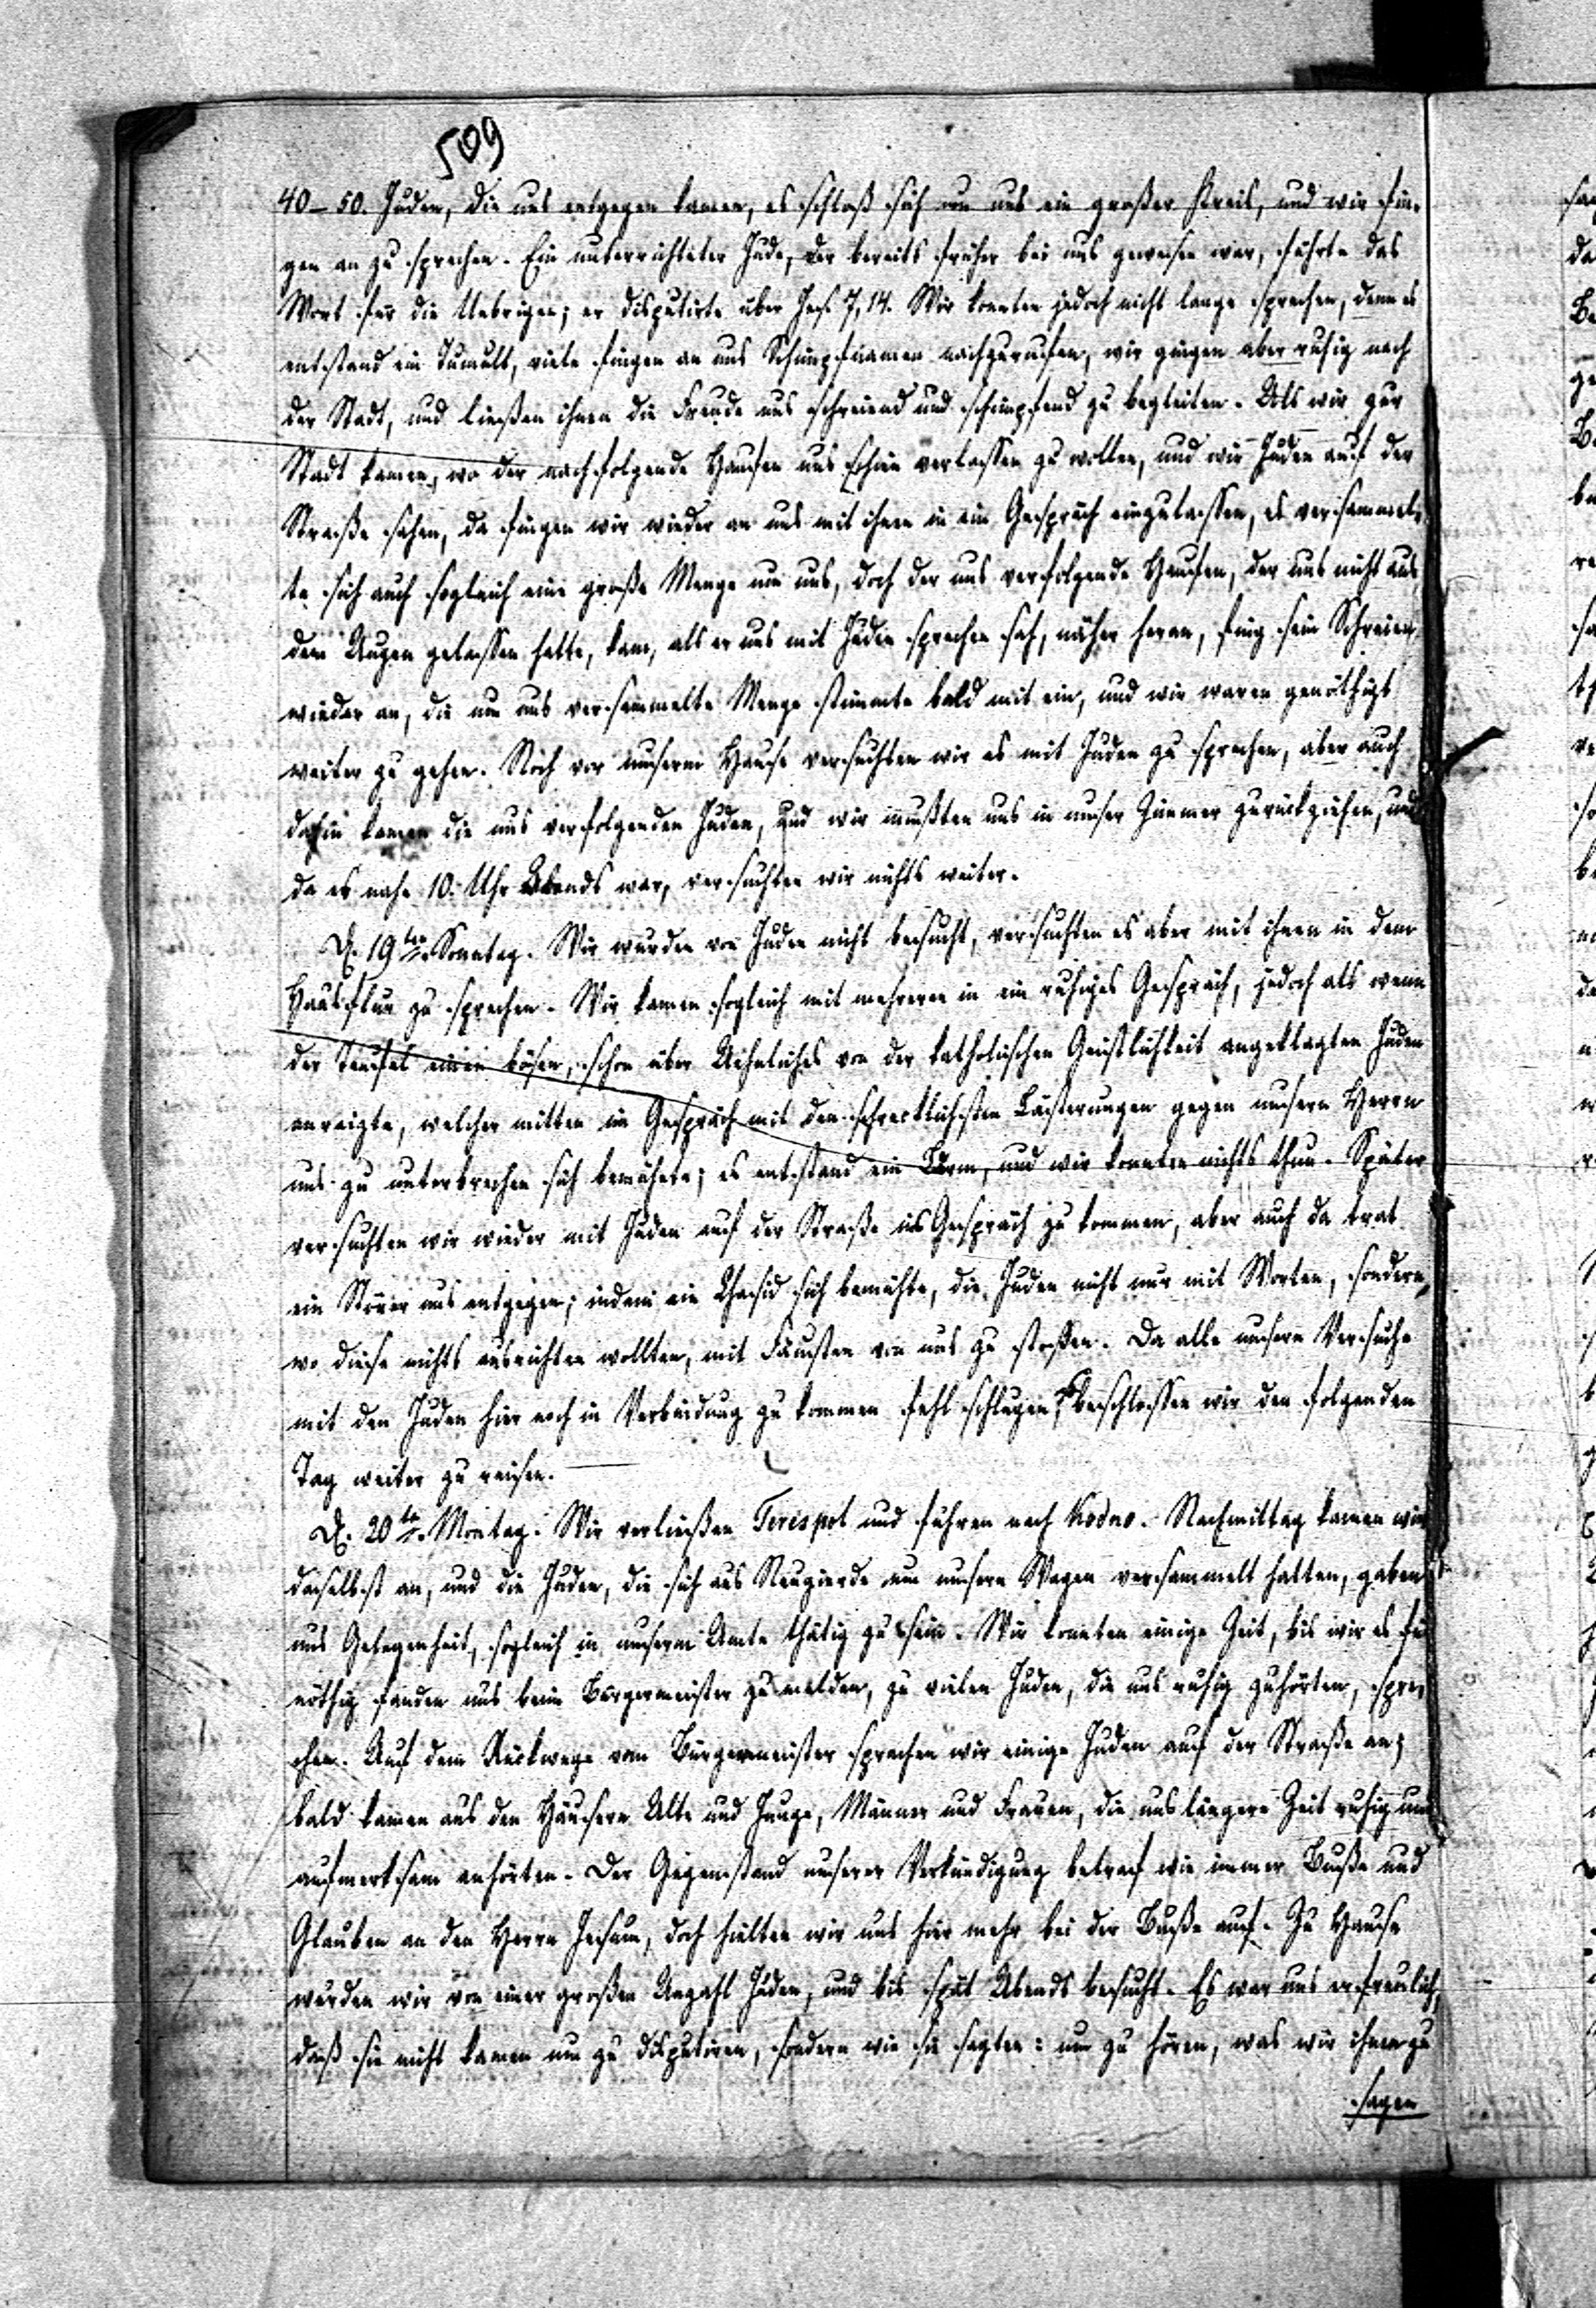 509
40–50. Juden, die uns entgegen kamen, es schloß sich um uns ein großer Kreis, und wir fin-
gen an zu sprechen. Ein unterrichteter Jude, der bereits früher bei uns gewesen war, führte das
Wort für die Uebrigen; er disputirte über Jes. 7,14. Wir konnten jedoch nicht lange sprechen, denn es
entstand ein Tumult, viele fingen an uns Schimpfnamen nachzurufen, wir gingen aber ruhig nach
der Stadt, und ließen ihnen die Freude uns schreiend und schimpfend zu begleiten. Als wir zur
Stadt kamen, wo der nachfolgende Haufen uns schien verlassen zu wollen, und wir Juden auf der
Straße sahen, da fingen wir wieder an uns mit ihnen in ein Gespräch einzulassen, es versammel-
te sich auch sogleich eine große Menge um uns, doch der uns verfolgende Haufen, der uns nicht aus
den Augen gelassen hatte, kam, als er uns mit Juden sprechen sah, näher heran, fing sein Schreien
wieder an, die um uns versammelte Menge stimmte bald mit ein, und wir waren genöthigt
weiter zu gehen. Noch vor unserm Hause versuchten wir es mit Juden zu sprechen, aber auch
dahin kamen die uns verfolgenden Juden, und wir mußten uns in unser Zimmer zurückziehen, und
da es nahe 10. Uhr Abends war, versuchten wir nichts weiter.
D. 19ten. Sonntag. Wir wurden von Juden nicht besucht, versuchten es aber mit ihnen in dem
Hausflur zu sprechen. Wir kamen sogleich mit mehreren in ein ruhiges Gespräch, jedoch als wenn
der Teufel einen bösen, schon über Aehnliches von der katholischen Geistlichkeit angeklagten Juden
anreizte, welcher mitten im Gespräch mit den schrecklichsten Lästerungen gegen unsern Herrn
uns zu unterbrechen sich bemühete; es entstand ein Lärm, und wir konnten nichts thun. Später
versuchten wir wieder mit Juden auf der Straße ins Gespräch zu kommen, aber auch da trat
ein Störer uns entgegen; indem ein Chasid sich bemühte, die Juden nicht nur mit Worten, sondern,
wo diese nichts ausrichten wollten, mit Fäusten von uns zu stoßen. Da alle unsere Versuche
mit den Juden hier noch in Verbindung zu kommen fehl schlugen, beschlossen wir den folgenden
Tag weiter zu reisen.
D. 20te. Montag. Wir verließen Terispol und fuhren nach Kodno. Nachmittag kamen wir
daselbst an, und die Juden, die sich aus Neugierde um unsern Wagen versammelt hatten, gaben
uns Gelegenheit, sogleich in unserm Amte thätig zu sein. Wir konnten einige Zeit, bis wir es für
nöthig fanden uns beim Bürgermeister zu melden, zu vielen Juden, die uns ruhig zuhörten, spre-
chen. Auf dem Rückwege vom Bürgermeister sprachen wir einige Juden auf der Straße an;
bald kamen aus den Häusern Alte und Junge, Männer und Frauen, die uns längere Zeit ruhig und
aufmerksam anhörten. Der Gegenstand unserer Verkündigung betraf wie immer Buße und
Glauben an den Herrn Jesum, doch hielten wir uns hier mehr bei der Buße auf. Zu Hause
wurden wir von einer großen Anzahl Juden, und bis spät Abends besucht. Es war uns erfreulich,
daß sie nicht kamen um zu disputiren, sondern wie sie sagten: um zu hören, was wir ihnen zu
sagen